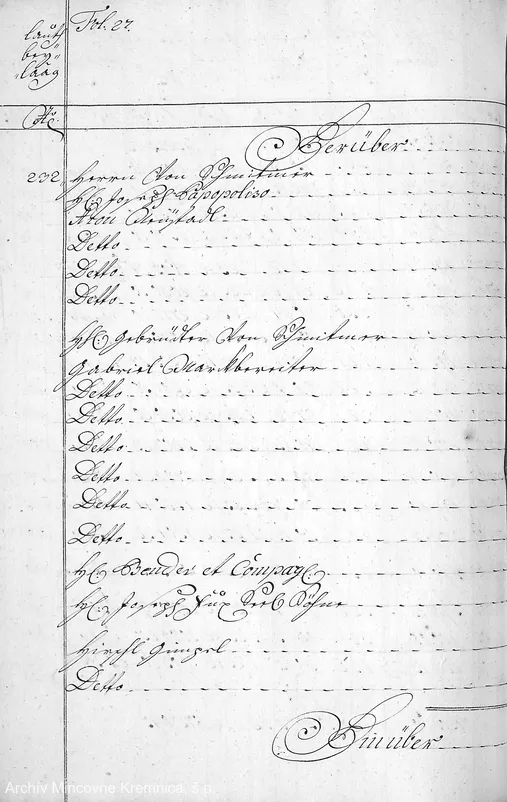 Fol. 27.
laut
bey-
laag
No.
Herüber
232. Herrn Von Schmitmer
H: Joseph Papopolizo
Aron Neustadl
Detto
Detto
Detto
H: Gebrüder Von Schmitmer
Gabriel Markbereiter
Detto
Detto
Detto
Detto
Detto
Detto
H: Bender et Compag:
H: Joseph Fux Seel Söhne
Hirschl Gumpel
Detto
Hinüber
Archív Mincovne Kremnica, š.p.